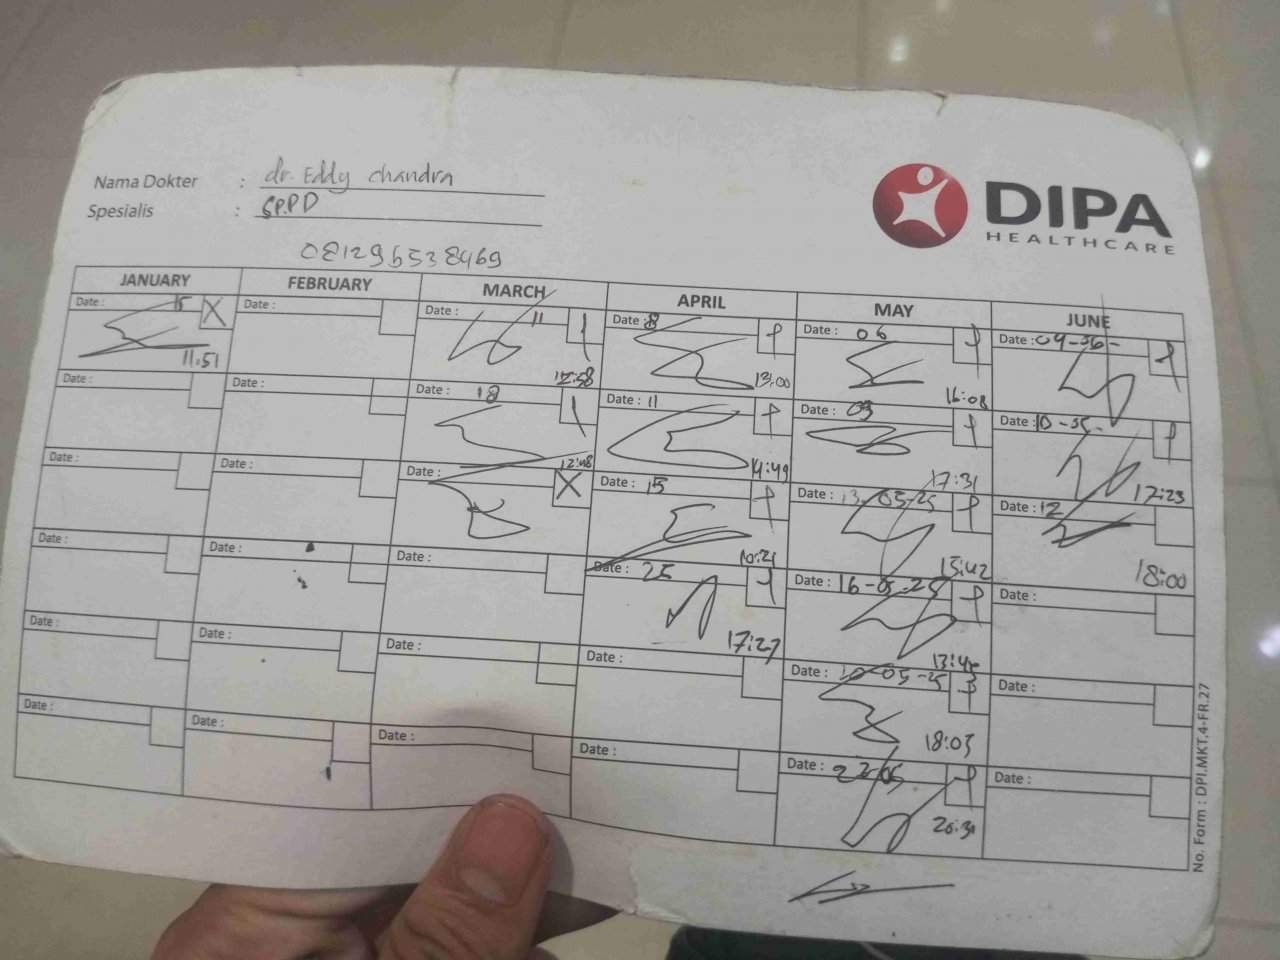 Nama Dokter : dr. Eddy Chandra
Spesialis : SP.PD
DIPA
HEALTHCARE
081296538469
JANUARY FEBRUARY MARCH APRIL MAY JUNE
Date : 15 Date : Date : 11 Date : 8 Date : 06 Date : 04-06-
11.51 12:58 13:00 16:08
Date : Date : Date : 18 Date : 11 Date : 09 Date : 10-
12:48 14:49 17:31 17:23
Date : Date : Date : Date : 15 Date : 13-05-25 Date : 12
10:21 15:42 18:00
Date : Date : Date : Date : 25 Date : 16-05-25 Date :
17:27
Date : Date : Date : Date : Date : 20-05-25 Date :
18:03
Date : Date : Date : Date : Date : 22-05 Date :
No. Form : DPI.MKT.4-FR.27